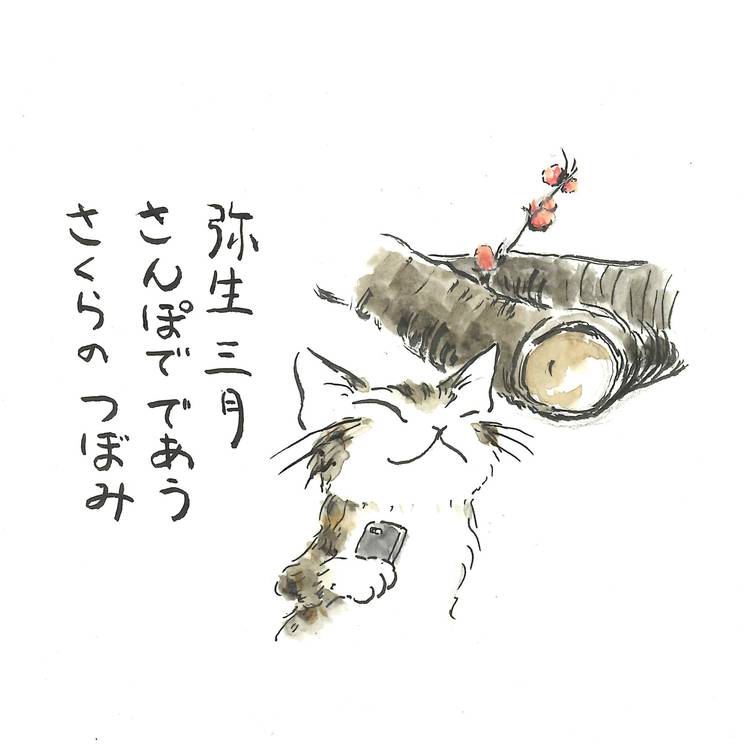 弥生 三月
さんぽで であう
さくらの つぼみ